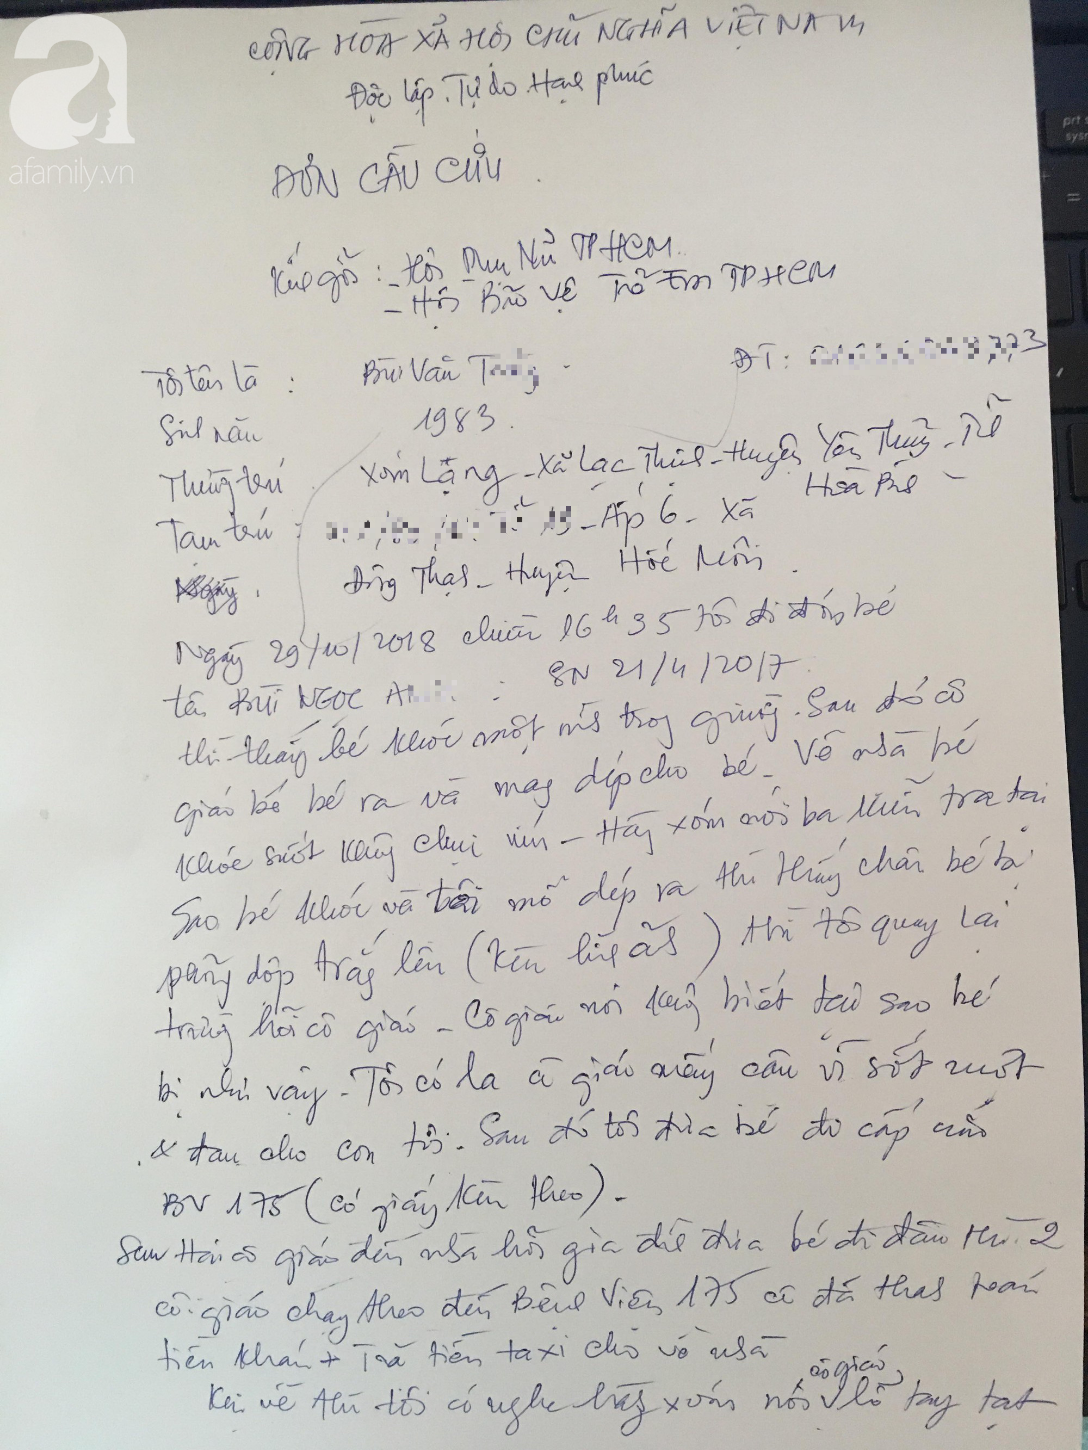 afamily.vn
prt s
sys
CỘNG HÒA XÃ HỘI CHŨ NGHĨA VIỆT NAM
Độc lập. Tự do. Hạnh phúc
ĐƠN CẦU CỨU.
Kính gỡi: - Hội Phụ Nữ TPHCM.
- Hội Bão Vệ Trẽ Em TPHCM
Tôi tên là : Bùi Văn T ĐT: 773
Sinh năm 1983.
Thường trú Xóm Lặng - Xã Lạc Thịnh - Huyện Yên Thũy - Tĩnh
Hòa Bình
Tạm trú : - Ấp 6 - Xã
Đông Thạnh - Huyện Hóc Môn.
Ngày 29/10/2018 chiều 16h35 tôi đi đón bé
tên BÙI NGỌC A : SN 21/4/2017.
thì thấy bé khóc một mình trong giường. Sau đó cô
giáo bế bé ra và mang dép cho bé - Về nhà bé
khóc suốt không chịu nín - Hàng xóm nói ba kiễm tra tại
Sao bé khóc và tôi mỡ dép ra thì thấy chân bé bị
phòng dộp trắng lên (Kèn hình ãnh) thì tôi quay lại
trường hỗi cô giáo - Cô giáo nói không biết tại sao bé
bị như vậy - Tôi có la cô giáo mấy câu vì sốt ruột
& đau cho con tôi. Sau đó tôi đưa bé đi cấp cứu
BV 175 (có giấy kèn theo) -
Sau Hai cô giáo đến nhà hỗi gia đình đưa bé đi đâu thì 2
cô giáo chạy theo đến Bệnh Viện 175 cô đã thanh toán
tiền khám + Trã tiền taxi cho về nhà
cô giáo
Khi về thì tôi có nghe hàng xóm nói lỡ tay tạt